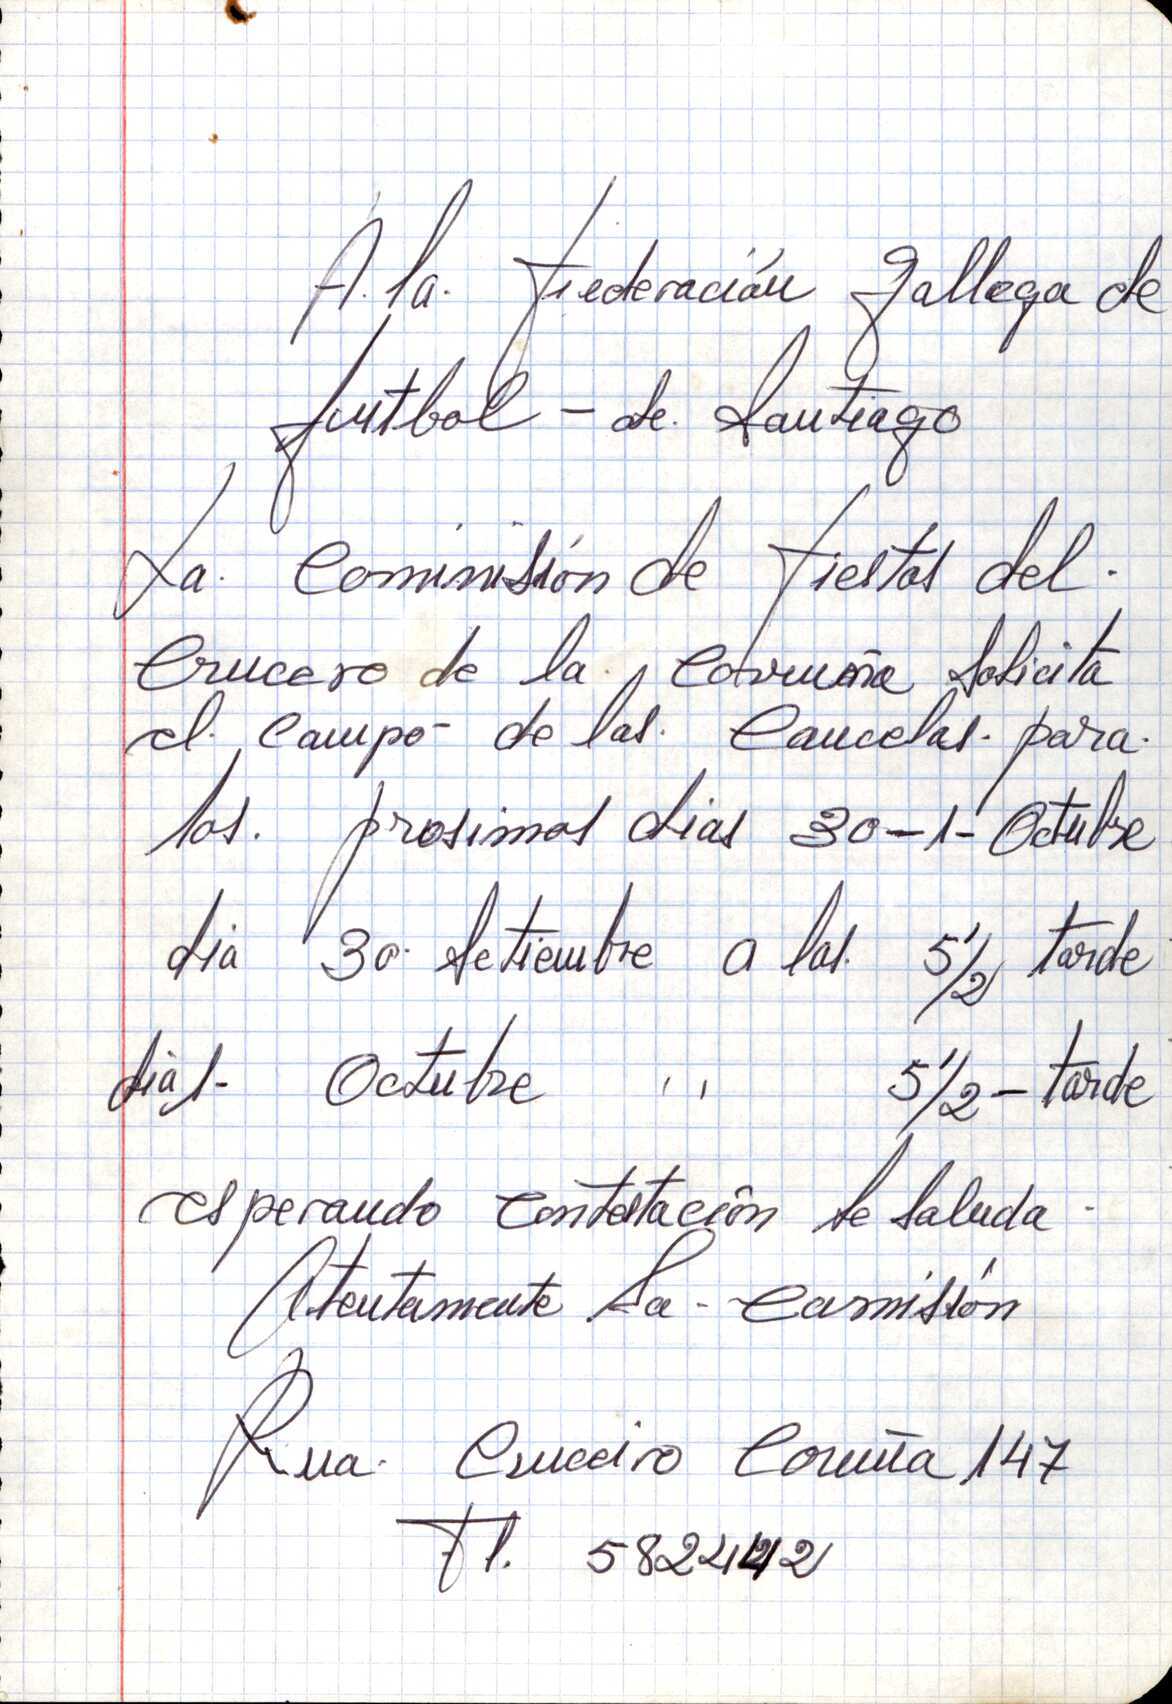 A. la. Fiederación gallega de
futbol - de. Santiago
La. Comimisión de Fiestas del.
Crucero de la. Coruña Solicita
el. Campo de las. Cancelas. para.
los. prosimos dias 30-1- Octubre
dia 30. Setiembre a las. 5 1/2 tarde
dia 1- Octubre " 5 1/2 - tarde
esperando Contestación se Saluda.
Atentamente La - Comisión
Rua. Cruceiro Coruña 147
Tl.